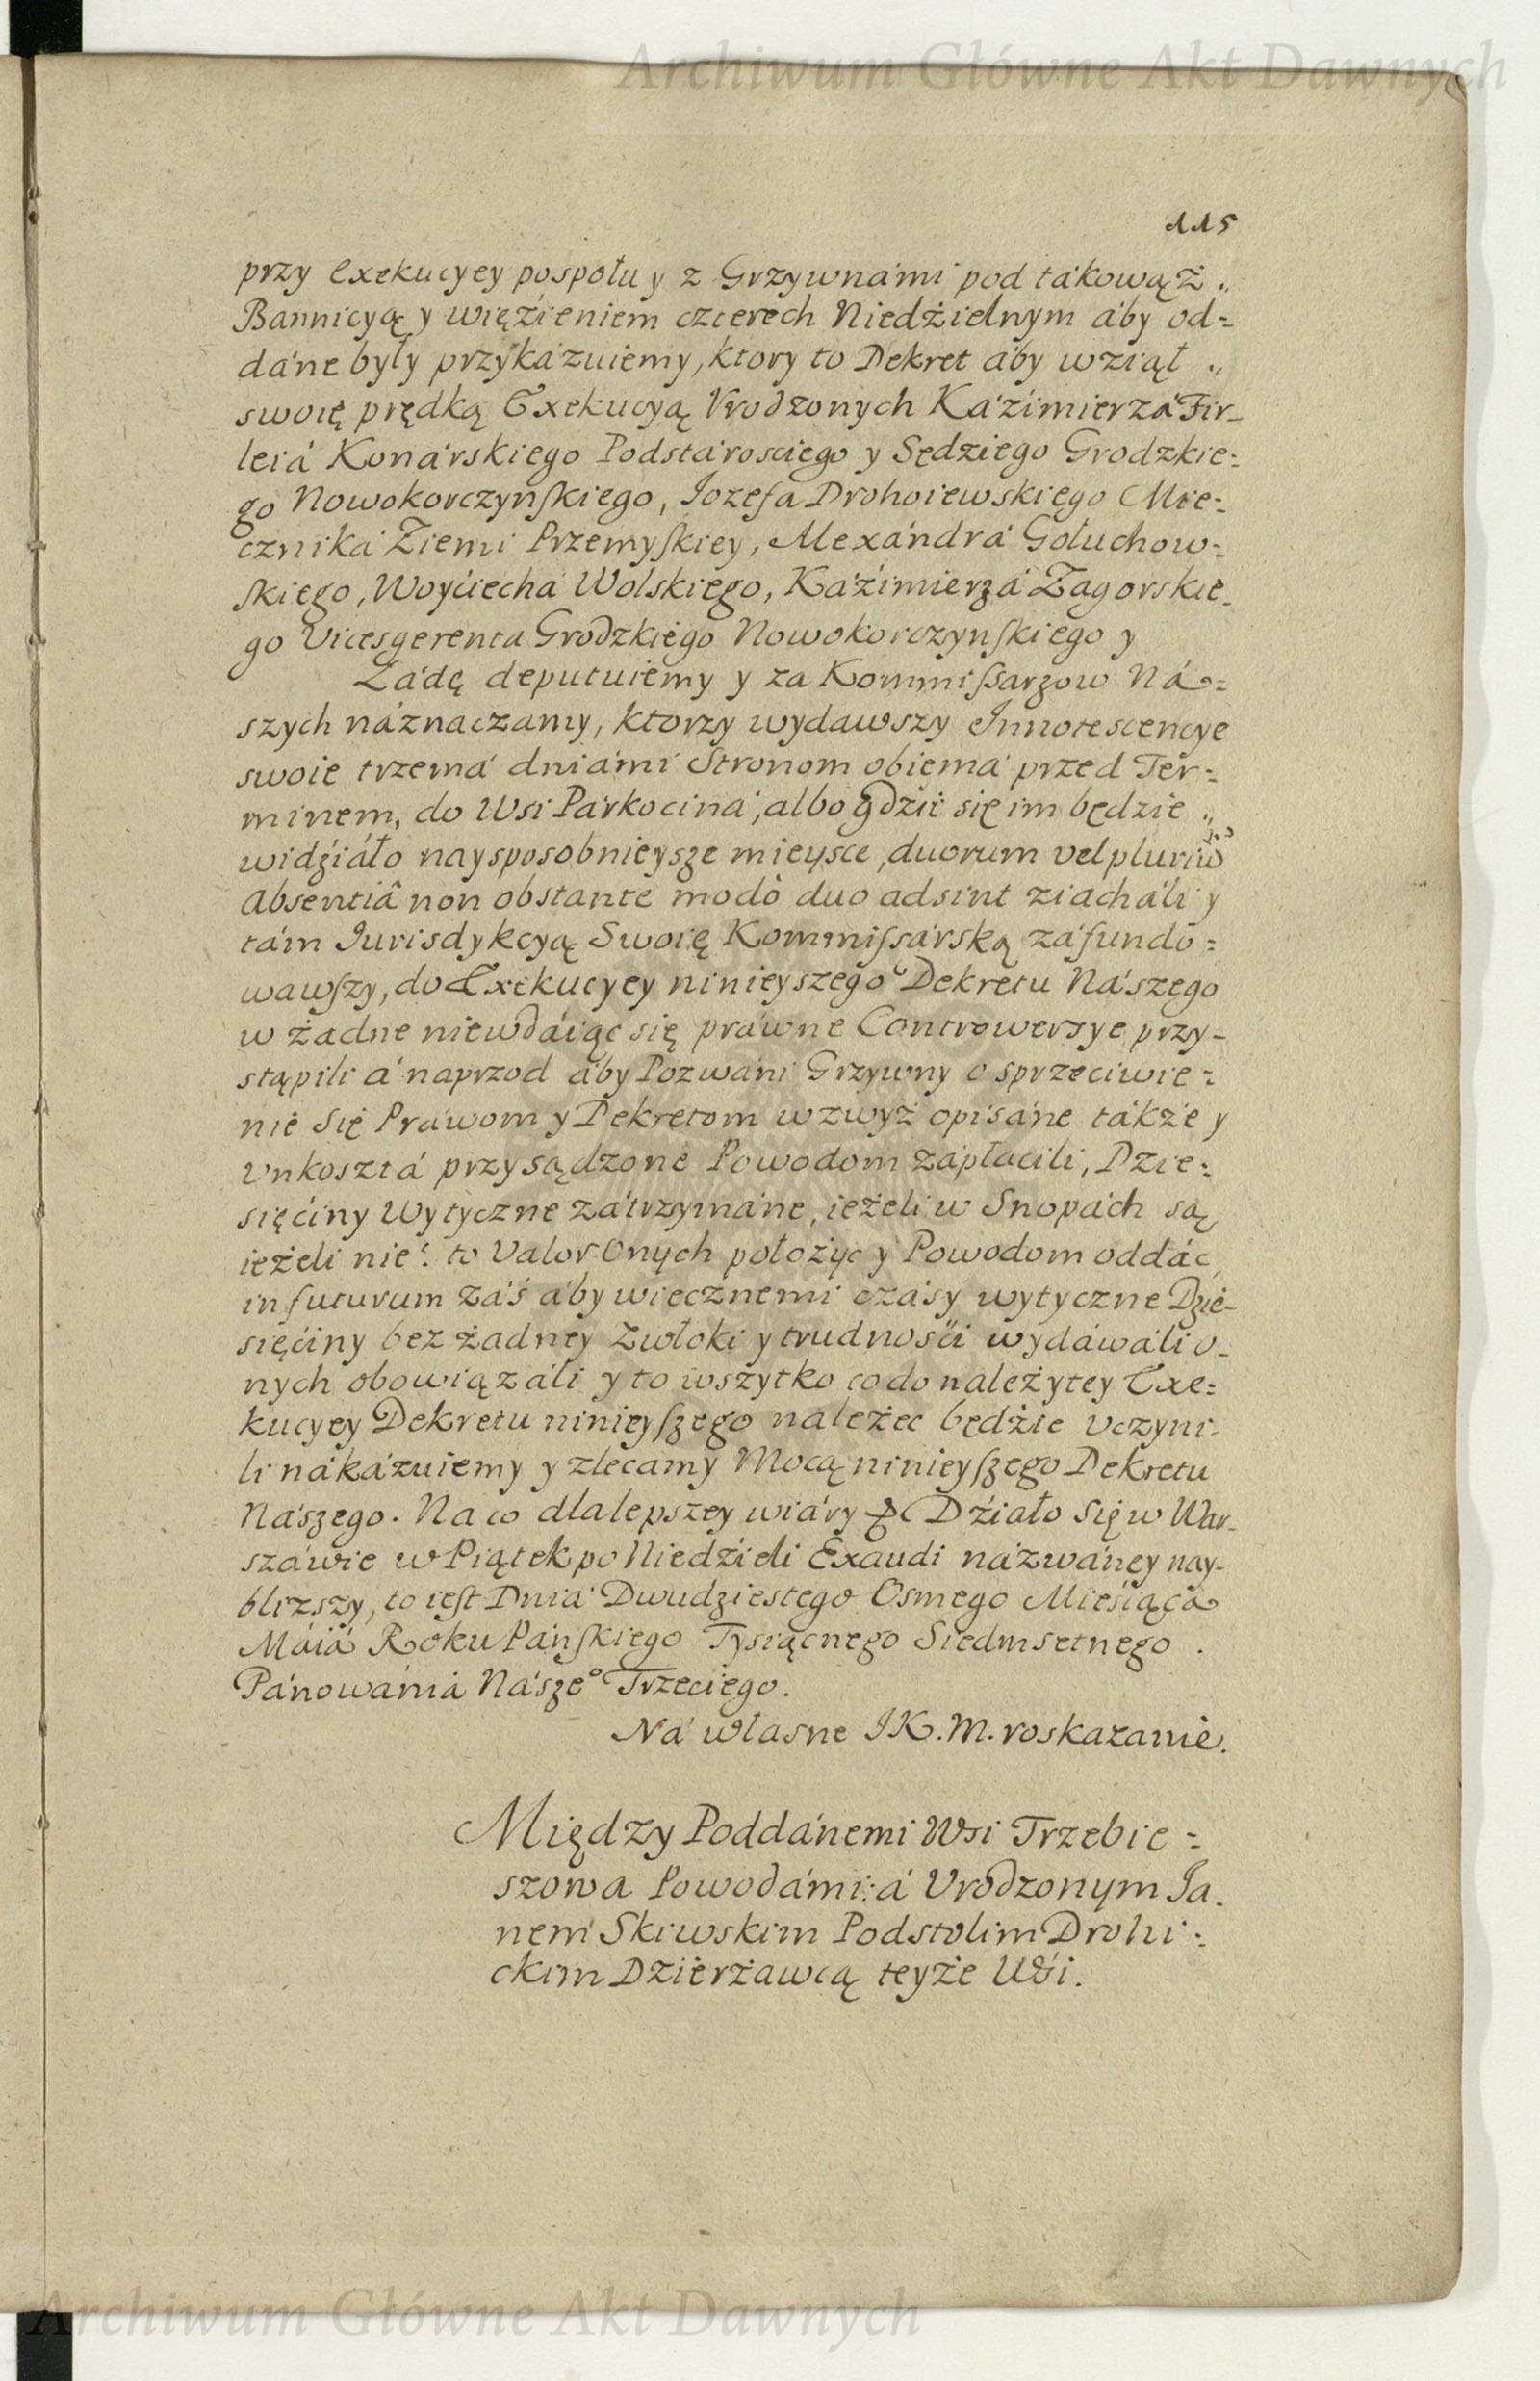 Archiwum Główne Akt Dawnych
115
przy Exekucyey pospołu y z Grzywnámi pod tákowąż „
Bannicyą y więźieniem czterech Niedźielnym áby od=
dáne były przykázuiemy, ktory to Dekret áby wziął „
swoię prędką Exekucyą Vrodzonych Káźimierzá Fir-
leiá Konárskiego Podstárosciego y Sędziego Grodzkie=
go Nowokorczynſkiego, Iozefa Drohoiewskiego Mie=
cznika Ziemi Przemyſkiey, Alexándrá Gołuchow=
ſkiego, Woyćiecha Wolskiego, Káźimierzá Zagorskie-
go Vicesgerenta Grodzkiego Nowokorczynſkiego y
Ládę deputuiemy y za Kommiſsarzow Ná=
szych náznaczamy, ktorzy wydawszy Innotescencye
swoie trzemá dniámi Stronom obiemá przed Ter=
minem, do Wsi Párkociná, albo gdzie się im będzie „
widźiáło naysposobnieysze mieysce, duorum vel pluriũ
absentiâ non obstante modò duo adsint ziacháli y
tám Iurisdykcyą Swoię Kommiſsárską záfundo=
wawſzy, do Exekucyey ninieyszego Dekretu Nászego
w żadne niewdáiąc się práwne Controwersye przy-
stąpili á naprzod áby Pozwáni Grzywny o sprzeciwie=
nie Się Práwom y Dekretom wzwyż opisáne tákże y
Vnkosztá przysądzone Powodom zápłacili, Dzie=
sięćiny Wytyczne zátrzymáne, ieżeli w Snopách są,
ieżeli nie: to Valor Onych położyc y Powodom oddác,
in futurum záś áby wiecznemi czásy wytyczne Dzie-
sięćiny bez żadney Zwłoki y trudnośći wydáwáli o-
nych obowiązáli y to wszytko co do należytey Exe=
kucyey Dekretu ninieyſzego należec będźie Vczyni-
li nákázuiemy y zlecamy Mocą ninieyſzego Dekretu
Nászego. Na co dla lepszey wiáry &c Dźiało Się w War-
száwie w Piątek po Niedźieli Exaudi názwáney nay-
blizszy, to ieſt Dniá Dwudziestego Osmego Miesiącá
Máiá Roku Pánſkiego Tysiącnego Siedmsetnego .
Pánowániá Násze° Trzeciego.
Ná własne I K. M. roskazanie.
Między Poddánemi Wsi Trzebie=
szowa Powodámi: á Vrodzonym Ja-
nem Skiwskim Podstolim Drohi=
ckim Dzierżawcą teyże Wśi.
Archiwum Główne Akt Dawnych